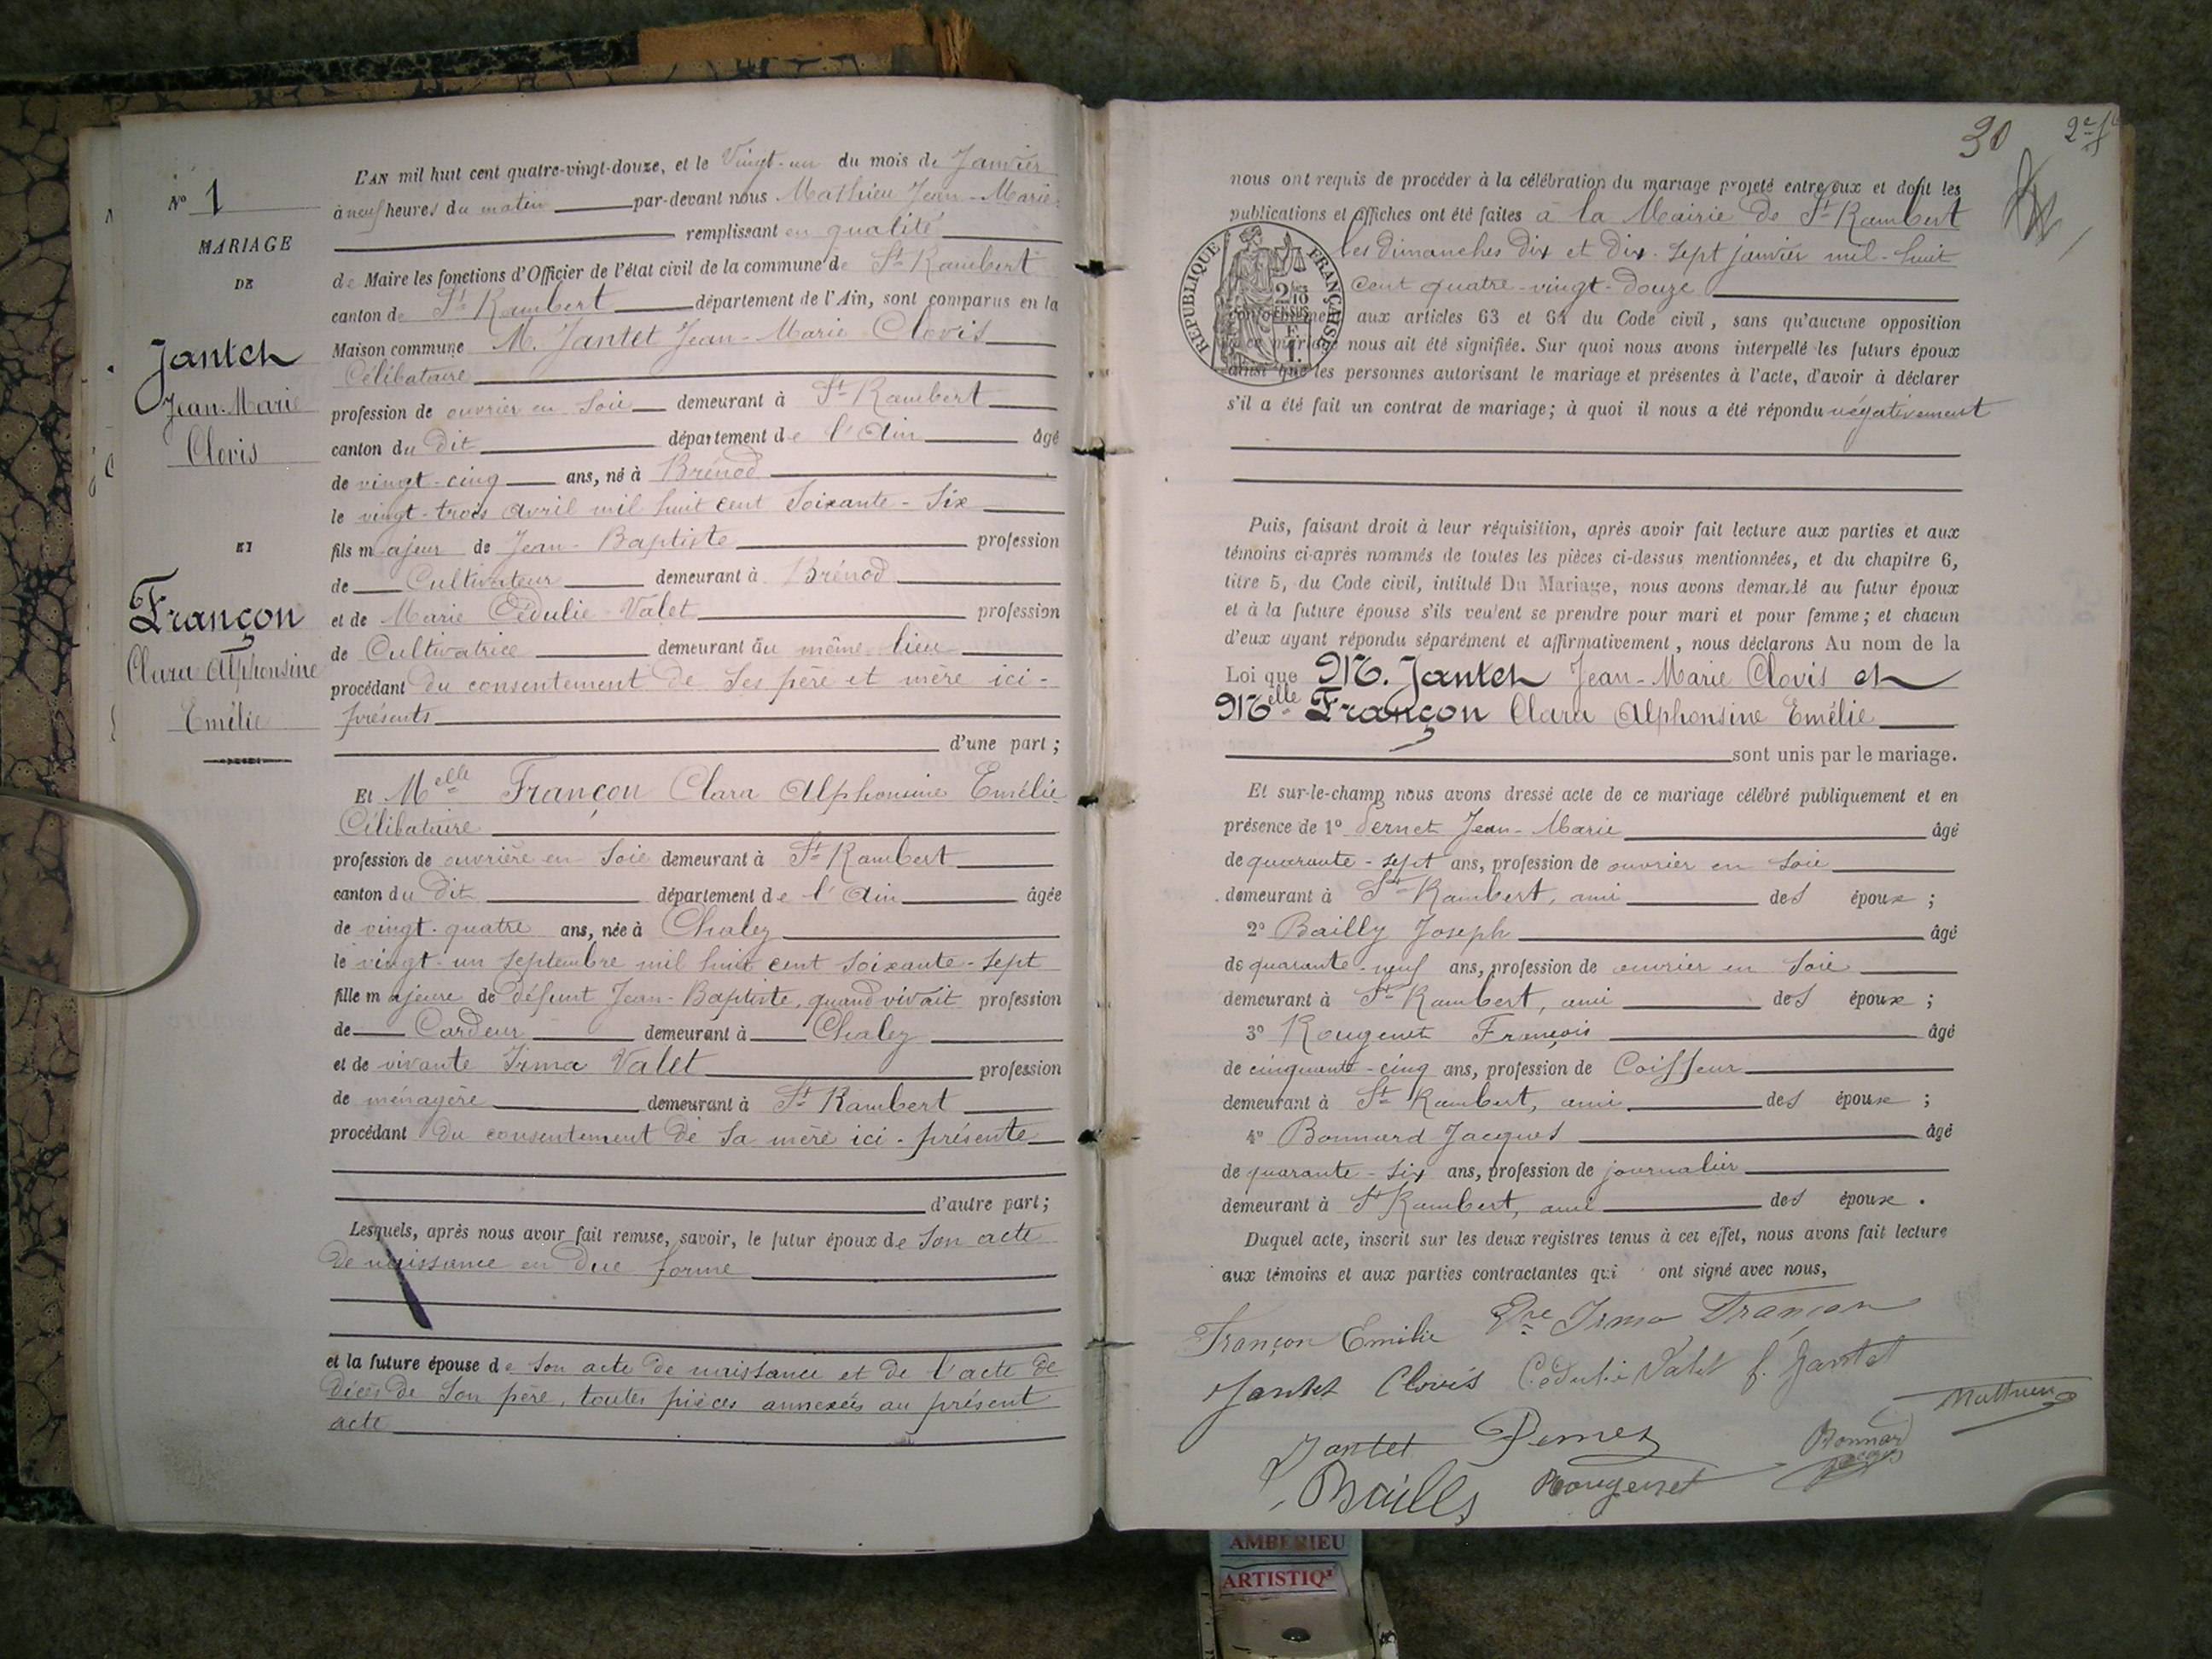 N° 1
MARIAGE
DE
Jantet
Jean-Marie
Clovis
ET
Françon
Clara Alphonsine
Emélie
L'AN mil huit cent quatre-vingt-douze, et le Vingt-un du mois de Janvier
à neuf heures du matin par-devant nous Mathieu Jean-Marie
remplissant en qualité
de Maire les fonctions d'Officier de l'état civil de la commune de St Rambert
canton de St Rambert département de l'Ain, sont comparus en la
Maison commune M. Jantet Jean-Marie Clovis
Célibataire
profession de ouvrier en soie demeurant à St Rambert
canton du dit département de l'Ain âgé
de vingt-cinq ans, né à Brénod
le vingt-trois avril mil huit cent soixante-six
fils majeur de Jean-Baptiste profession
de Cultivateur demeurant à Brénod
et de Marie Cédulie Valet profession
de Cultivatrice demeurant au même lieu
procédant du consentement de ses père et mère ici-
présents
d'une part;
Et Melle Françon Clara Alphonsine Emélie
Célibataire
profession de ouvrière en soie demeurant à St Rambert
canton du dit département de l'Ain âgée
de vingt-quatre ans, née à Chaley
le vingt-un septembre mil huit cent soixante-sept
fille majeure de défunt Jean-Baptiste, quand vivait profession
de Cardeur demeurant à Chaley
et de vivante Irma Valet profession
de ménagère demeurant à St Rambert
procédant du consentement de sa mère ici-présente
d'autre part;
Lesquels, après nous avoir fait remise, savoir, le futur époux de son acte
de naissance en due forme
et la future épouse de son acte de naissance et de l'acte de
décès de son père, toutes pièces annexées au présent
acte
30 2e f
nous ont requis de procéder à la célébration du mariage projeté entre eux et dont les
publications et affiches ont été faites à la Mairie de St Rambert
les dimanches dix et dix-sept janvier mil-huit
cent quatre-vingt-douze
RÉPUBLIQUE FRANÇAISE
2/10 EN SUS
conformément aux articles 63 et 64 du Code civil, sans qu'aucune opposition
à ce mariage nous ait été signifiée. Sur quoi nous avons interpellé les futurs époux
ainsi que les personnes autorisant le mariage et présentes à l'acte, d'avoir à déclarer
s'il a été fait un contrat de mariage; à quoi il nous a été répondu négativement
Puis, faisant droit à leur réquisition, après avoir fait lecture aux parties et aux
témoins ci-après nommés de toutes les pièces ci-dessus mentionnées, et du chapitre 6,
titre 5, du Code civil, intitulé Du Mariage, nous avons demandé au futur époux
et à la future épouse s'ils veulent se prendre pour mari et pour femme; et chacun
d'eux ayant répondu séparément et affirmativement, nous déclarons Au nom de la
Loi que M. Jantet Jean-Marie Clovis et
Melle Françon Clara Alphonsine Emélie
sont unis par le mariage.
Et sur-le-champ nous avons dressé acte de ce mariage célébré publiquement et en
présence de 1° Pernet Jean-Marie âgé
de quarante-sept ans, profession de ouvrier en soie
demeurant à St Rambert, ami des époux;
2° Bailly Joseph âgé
de quarante-neuf ans, profession de ouvrier en soie
demeurant à St Rambert, ami des époux;
3° Rougenet François âgé
de cinquante-cinq ans, profession de Coiffeur
demeurant à St Rambert, ami des époux;
4° Bonnard Jacques âgé
de quarante-six ans, profession de journalier
demeurant à St Rambert, ami des époux.
Duquel acte, inscrit sur les deux registres tenus à cet effet, nous avons fait lecture
aux témoins et aux parties contractantes qui ont signé avec nous,
Françon Emilie Vve Irma Françon
Jantet Clovis Cédulie Valet f. Jantet
Mathieu
Jantet Pernet Bonnard
Jacques
Bailly Rougenet
AMBERIEU
ARTISTIQ